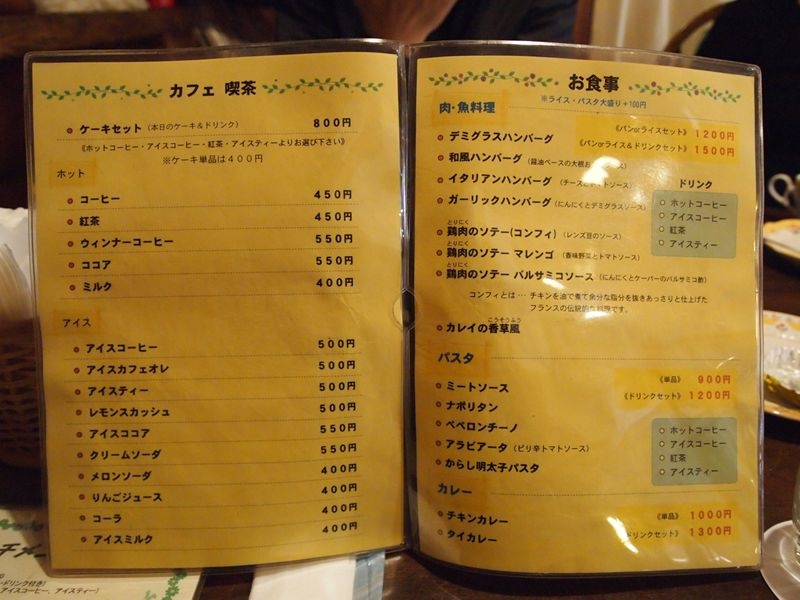 カフェ 喫茶
ケーキセット (本日のケーキ&ドリンク) 800円
《ホットコーヒー・アイスコーヒー・紅茶・アイスティーよりお選び下さい》
※ケーキ単品は400円
ホット
コーヒー 450円
紅茶 450円
ウィンナーコーヒー 550円
ココア 550円
ミルク 400円
アイス
アイスコーヒー 500円
アイスカフェオレ 500円
アイスティー 500円
レモンスカッシュ 500円
アイスココア 550円
クリームソーダ 550円
メロンソーダ 400円
りんごジュース 400円
コーラ 400円
アイスミルク 400円
お食事
※ライス・パスタ大盛り+100円
肉・魚料理
《パンorライスセット》 1200円
《パンorライス&ドリンクセット》 1500円
デミグラスハンバーグ
和風ハンバーグ (醤油ベースの大根お
イタリアンハンバーグ (チーズ トマトソース)
ガーリックハンバーグ (にんにくとデミグラスソース)
ドリンク
ホットコーヒー
アイスコーヒー
紅茶
アイスティー
とりにく
鶏肉のソテー(コンフィ) (レンズ豆のソース)
とりにく
鶏肉のソテー マレンゴ (香味野菜とトマトソース)
とりにく
鶏肉のソテー バルサミコソース (にんにくとケーパーのバルサミコ酢)
コンフィとは… チキンを油で煮て余分な脂肪を抜きあっさりと仕上げた
フランスの伝統的な料理です。
こうそうふう
カレイの香草風
パスタ
《単品》 900円
《ドリンクセット》 1200円
ミートソース
ナポリタン
ペペロンチーノ
アラビアータ (ピリ辛トマトソース)
からし明太子パスタ
ホットコーヒー
アイスコーヒー
紅茶
アイスティー
カレー
チキンカレー
タイカレー
《単品》 1000円
ドリンクセット》 1300円
ドリンク付き)
アイスコーヒー、アイスティー)